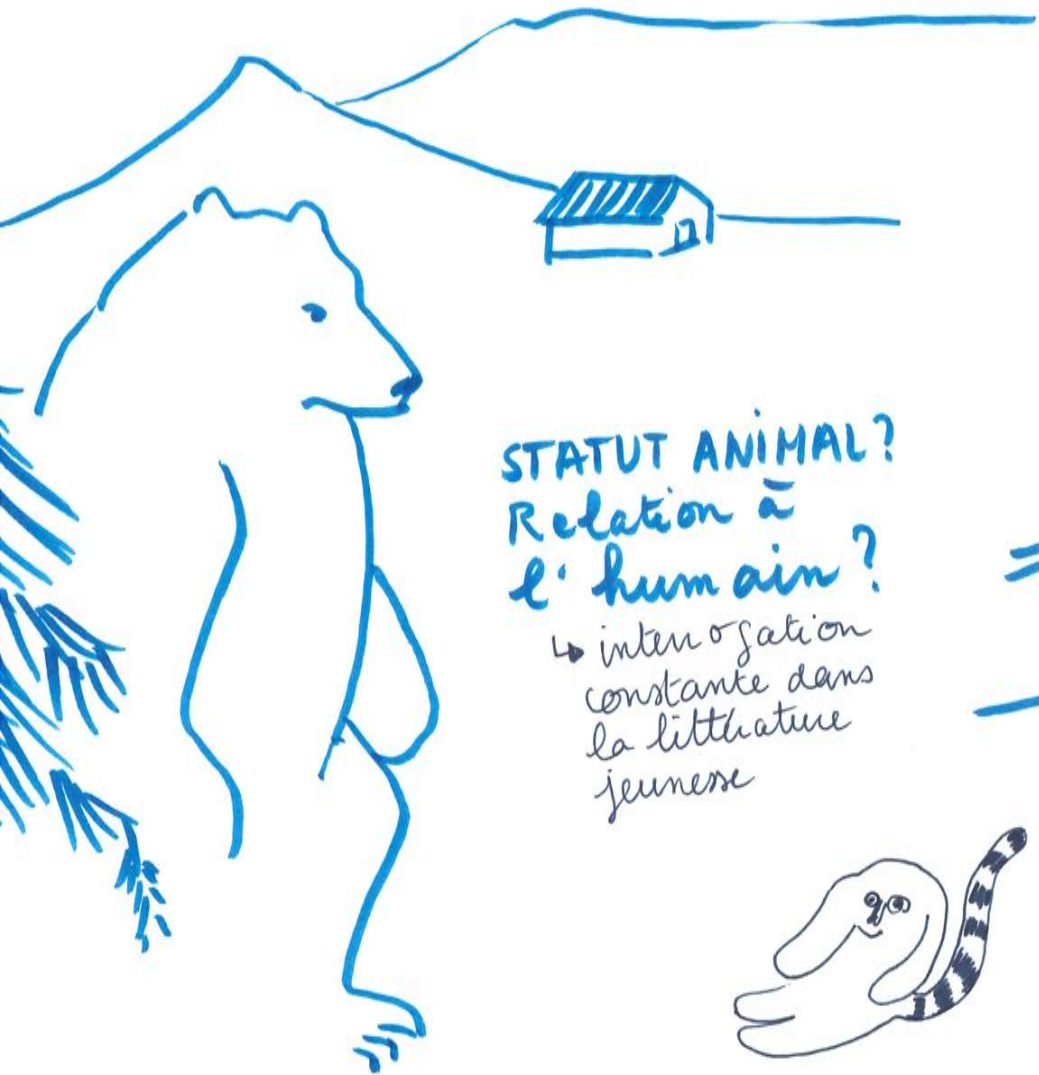 STATUT ANIMAL?
Relation à
l'humain?
↳ interrogation
constante dans
la littérature
jeunesse